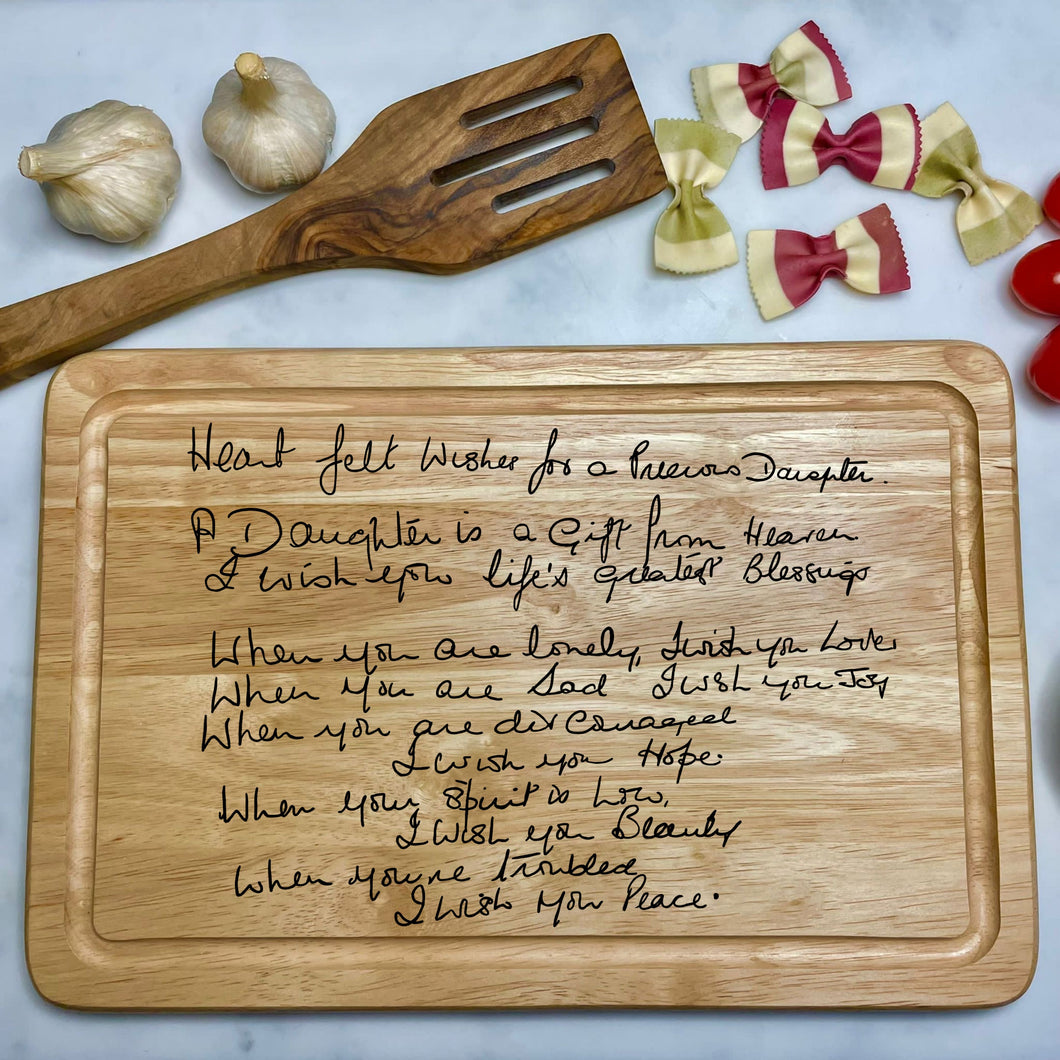 Heart felt Wishes for a Precious Daughter.
A Daughter is a Gift from Heaven
I wish you life's greatest Blessings
When you are lonely, I wish you Love
When you are Sad I wish you Joy
When you are discouraged
I wish you Hope.
When your spirit is Low,
I wish you Beauty
When you're troubled
I wish you Peace.